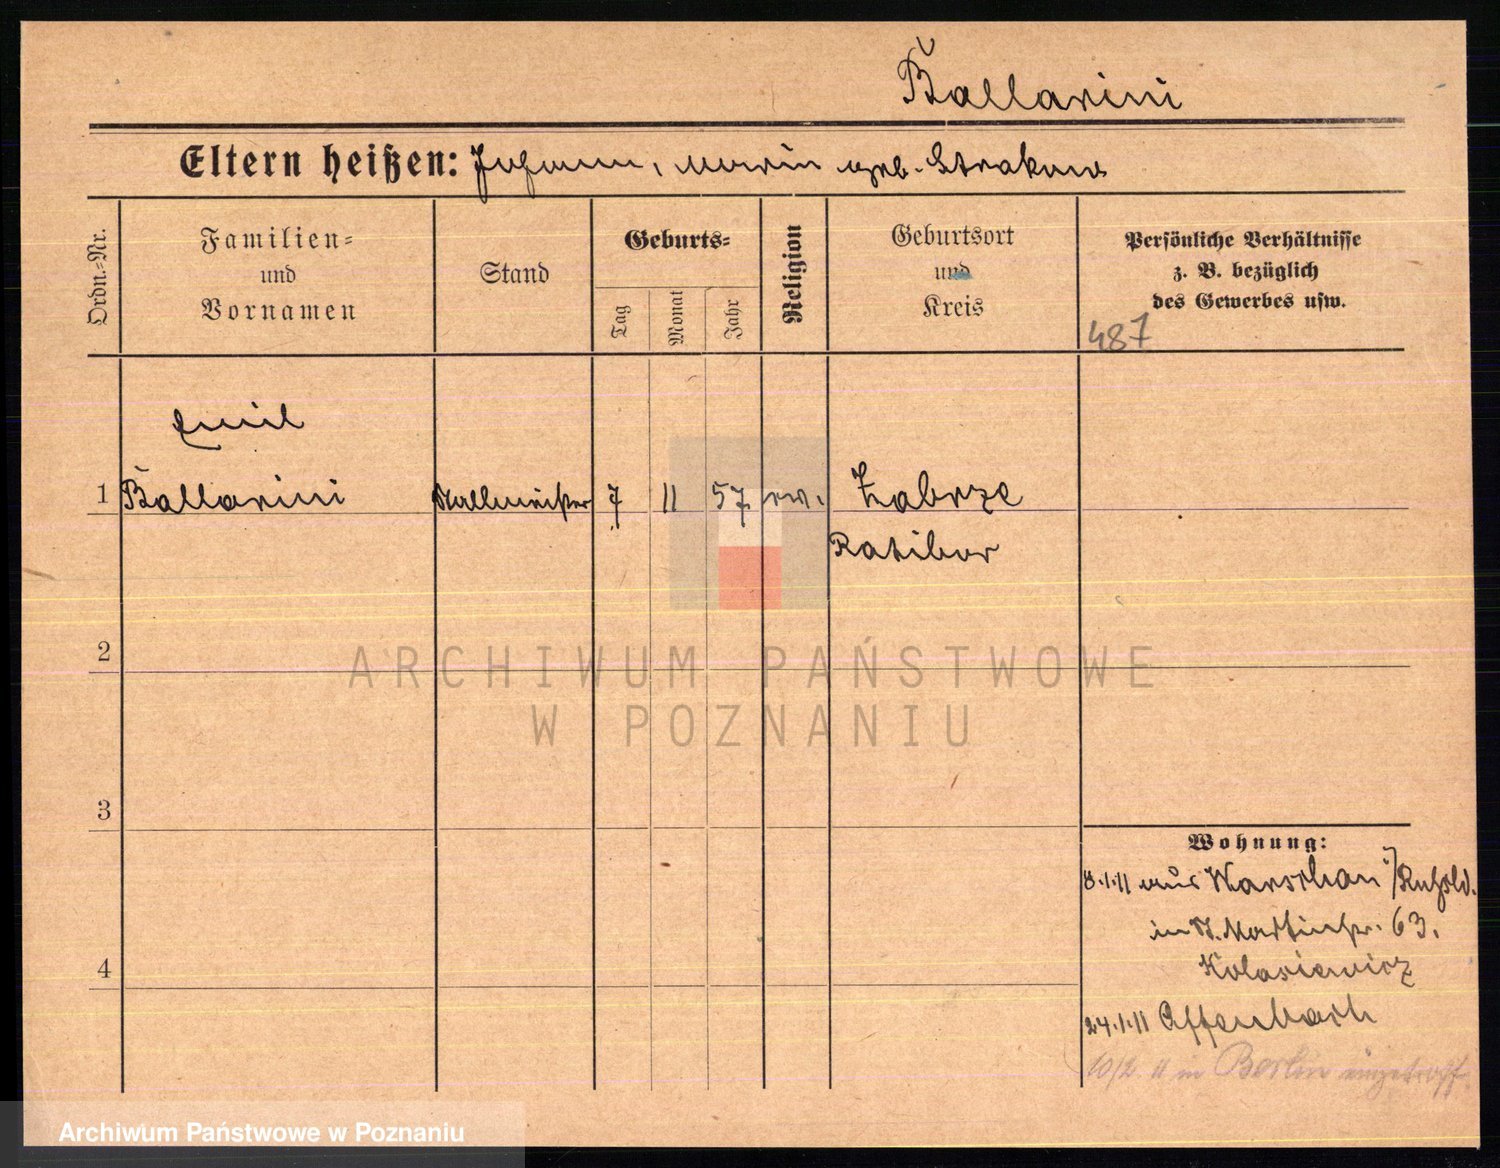 Ballarini
Eltern heißen: Johann, Marie geb. Strakow
Ordn.-Nr.
Familien-
und
Vornamen
Stand
Geburts-
Tag
Monat
Jahr
Religion
Geburtsort
und
Kreis
Persönliche Verhältnisse
z. B. bezüglich
des Gewerbes usw.
487
Emil
1 Ballarini Stallmeister 7 11 57 Zabrze
Ratibor
2
3
4
Wohnung:
8.1.11 aus Warschau i/Rußld.
in St. Martinstr. 63.
Kolasiewicz
24.1.11 Offenbach
10/2. 11 in Berlin eingetroff.
ARCHIWUM PAŃSTWOWE
W POZNANIU
Archiwum Państwowe w Poznaniu